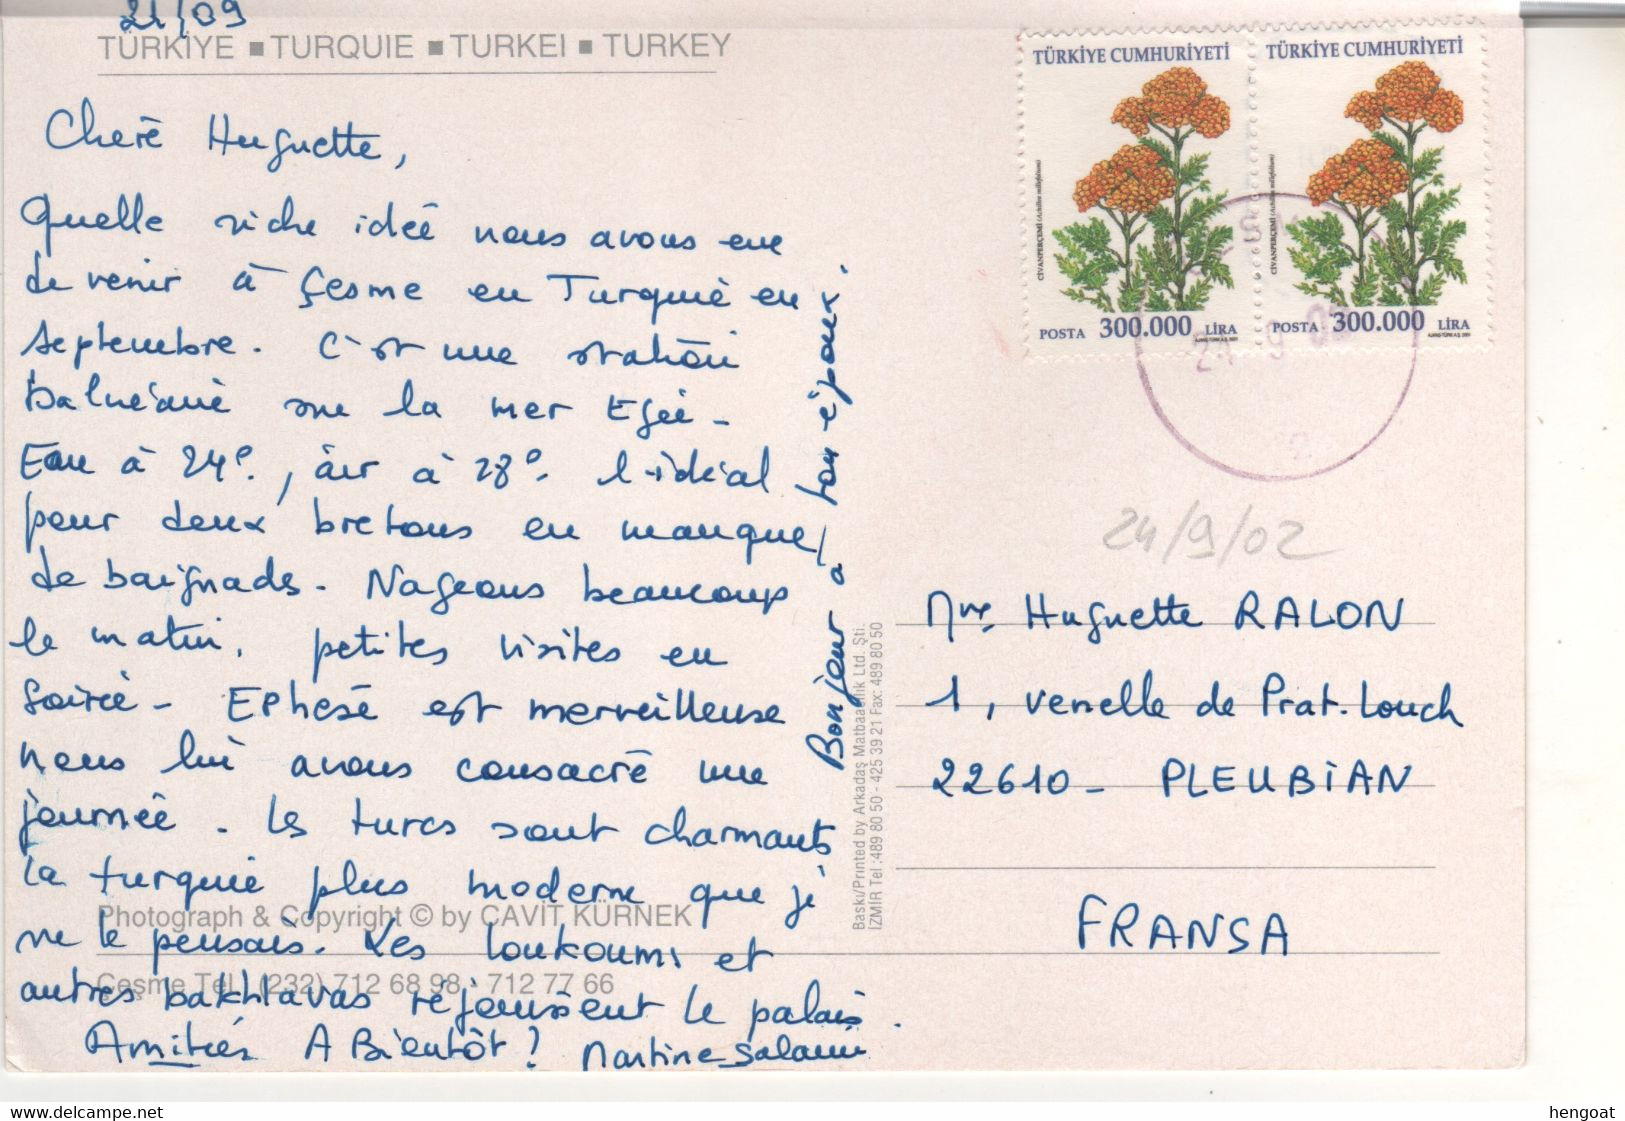 21/09
TÜRKİYE ■ TURQUIE ■ TURKEI ■ TURKEY
Chère Huguette,
Quelle riche idée nous avons eue
de venir à Çesme en Turquie en
septembre. C'est une station
balnéaire sur la mer Egée -
Eau à 24°, air à 28° - l'idéal
pour deux bretons en manque
de baignades - Nageons beaucoup
le matin, petites visites en
soirée - Ephèse est merveilleuse
nous lui avons consacré une
journée - Les turcs sont charmants
la turquie plus moderne que je
ne le pensais. Les loukoums et
autres bakhlavas réjouissent le palais.
Amitiés A Bientôt ! Martine Salaun
Bonjour à ton époux !
Photograph & Copyright © by CAVİT KÜRNEK
Çeşme Tel. (232) 712 68 98 - 712 77 66
Baskı/Printed by Arkadaş Matbaacılık Ltd. Şti.
İZMİR Tel :489 80 50 - 425 39 21 Fax: 489 80 50
TÜRKİYE CUMHURİYETİ
CİVANPERÇEMİ (Achillea millefolium)
POSTA 300.000 LİRA
AJANS-TÜRK A.Ş. 2001
TÜRKİYE CUMHURİYETİ
CİVANPERÇEMİ (Achillea millefolium)
POSTA 300.000 LİRA
AJANS-TÜRK A.Ş. 2001
24/9/02
Mme Huguette RALON
1, venelle de Prat-Louch
22610 - PLEUBIAN
FRANSA
https://www.delcampe.net
hengoat